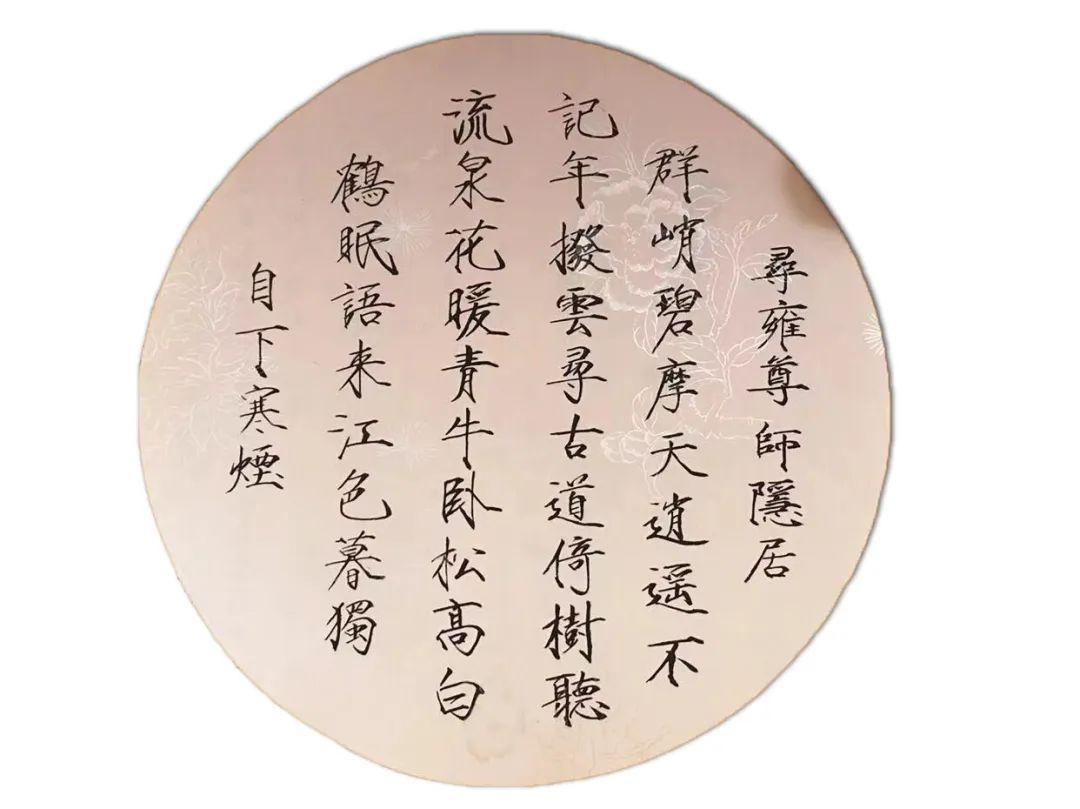 尋雍尊師隱居
群峭碧摩天逍遥不
記年撥雲尋古道倚樹聽
流泉花暖青牛卧松高白
鶴眠語来江色暮獨
自下寒煙